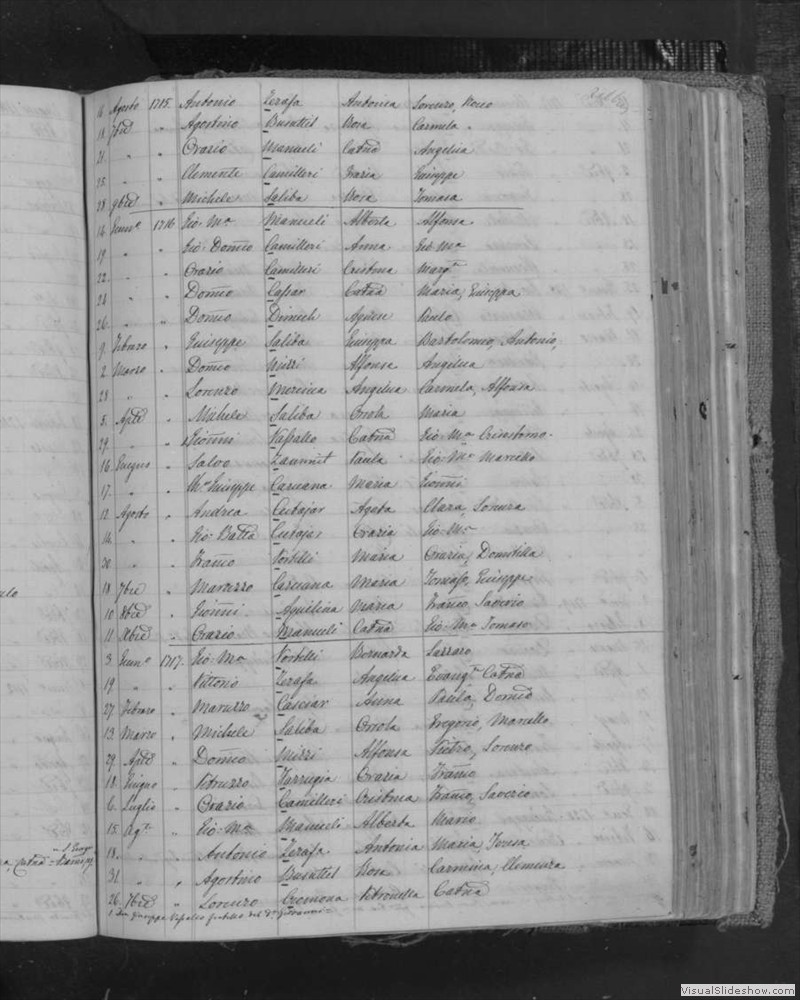 16 Agosto 1715 Antonio Zerafa Antonia Lorenzo, Rocco
18 7bre " Agostino Busuttil Rosa Carmela
21 " " Orazio Manueli Catna Angelica
25 " " Clemente Camilleri Grazia Giuseppe
28 9bre " Michele Saliba Rosa Tomasa
14 Genn° 1716 Gio: Ma Manueli Alberta Alfonsa
19 " " Gio: Domco Camilleri Anna Gio Ma
22 " " Orazio Camilleri Cristina Margta
24 " " Domco Cassar Catna Maria, Giuseppa
26 " " Domco Dimech Agnese Paulo
9 Febraro " Giuseppe Saliba Giuseppa Bartolomeo, Antonio,
2 Marzo " Domco Mizzi Alfonsa Angelica
28 " " Lorenzo Mercieca Angelica Carmela, Alfonsa
5 Aple " Michele Saliba Orsola Maria
29 " " Gionni Vassallo Catna Gio: Ma Crisostomo
16 Giugno " Salvo Zammit Paula Gio: Ma Marcello
17 " " Giuseppe Caruana Maria Gionni
12 Agosto " Andrea Cutajar Agata Clara, Lonura
14 " " Gio: Batta Cutajar Grazia Gio: Ma
30 " " Franco Portelli Maria Grazia, Domitilla
18 7bre " Maruzzo Caruana Maria Tomaso, Giuseppe
10 8bre " Gionni Aquilina Maria Franco, Saverio
11 Xbre " Orazio Manueli Catna Gio: Ma Tomaso
3 Genn° 1717 Gio: Ma Portelli Bernarda Lazzaro
19 " " Vittorio Zerafa Angelica Evangta Catna
27 Febraro " Maruzzo Casciar Anna Paulo, Domco
13 Marzo " Michele Saliba Orsola Gregorio, Marcello
29 Aple " Domco Mizzi Alfonsa Pietro, Lorenzo
18 Giugno " Petruzzo Farrugia Grazia Franco
6 Luglio " Orazio Camilleri Cristina Franco, Saverio
15 Agto " Gio: Ma Manueli Alberta Mario
18 " " Antonio Zerafa Antonia Maria, Teresa
31 " " Agostino Busuttil Rosa Carmina, Clemenza
26 7bre " Lorenzo Cremona Petronilla Catna
Giuseppe Vassallo fratello del Giovanni
VisualSlideshow.com